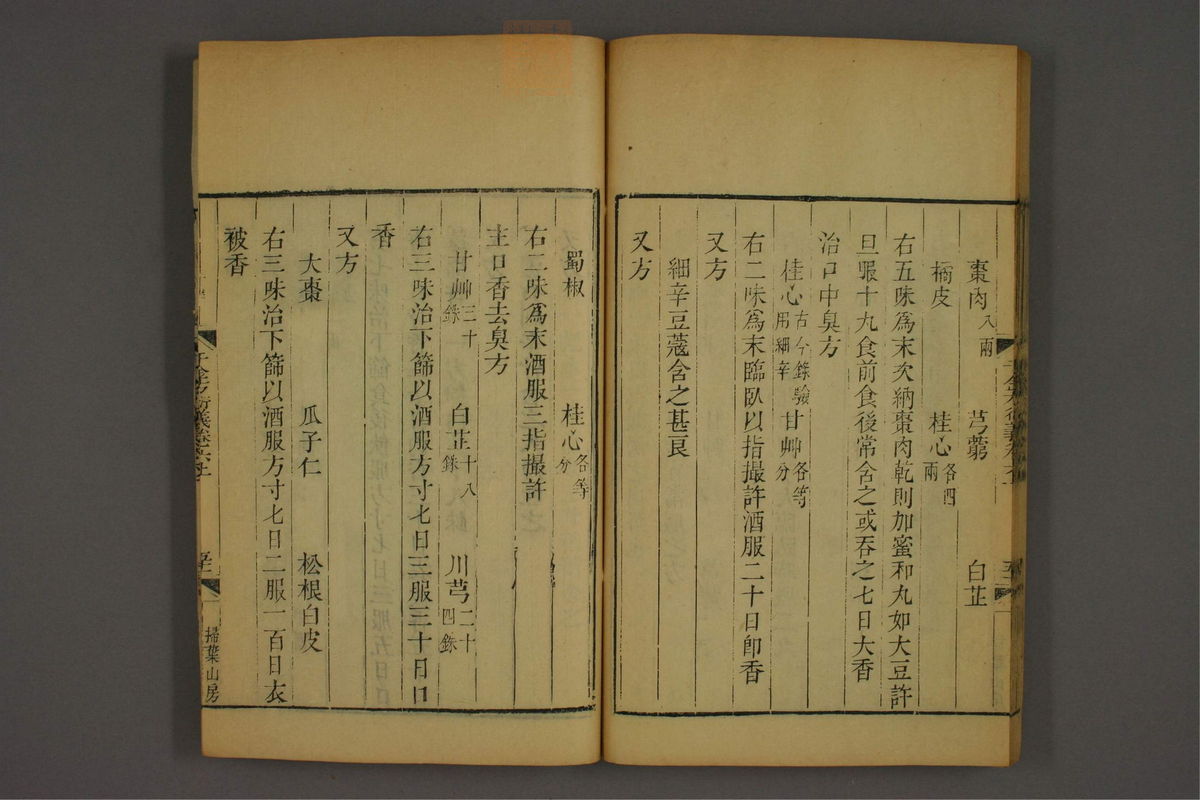 棗肉八兩　芎藭　白芷
橘皮　桂心各四兩
右五味爲末次納棗肉乾則加蜜和丸如大豆許
旦服十丸食前食後常含之或吞之七日大香
治口中臭方
桂心古今錄驗用細辛　甘艸各等分
右二味爲末臨臥以指撮許酒服二十日卽香
又方
細辛豆蔻含之甚良
又方
蜀椒　桂心各等分
右二味爲末酒服三指撮許
主口香去臭方
甘艸三十銖　白芷十八銖　川芎二十四銖
右三味治下篩以酒服方寸七日三服三十日口
香
又方
大棗　瓜子仁　松根白皮
右三味治下篩以酒服方寸七日二服一百日衣
被香
掃葉山房